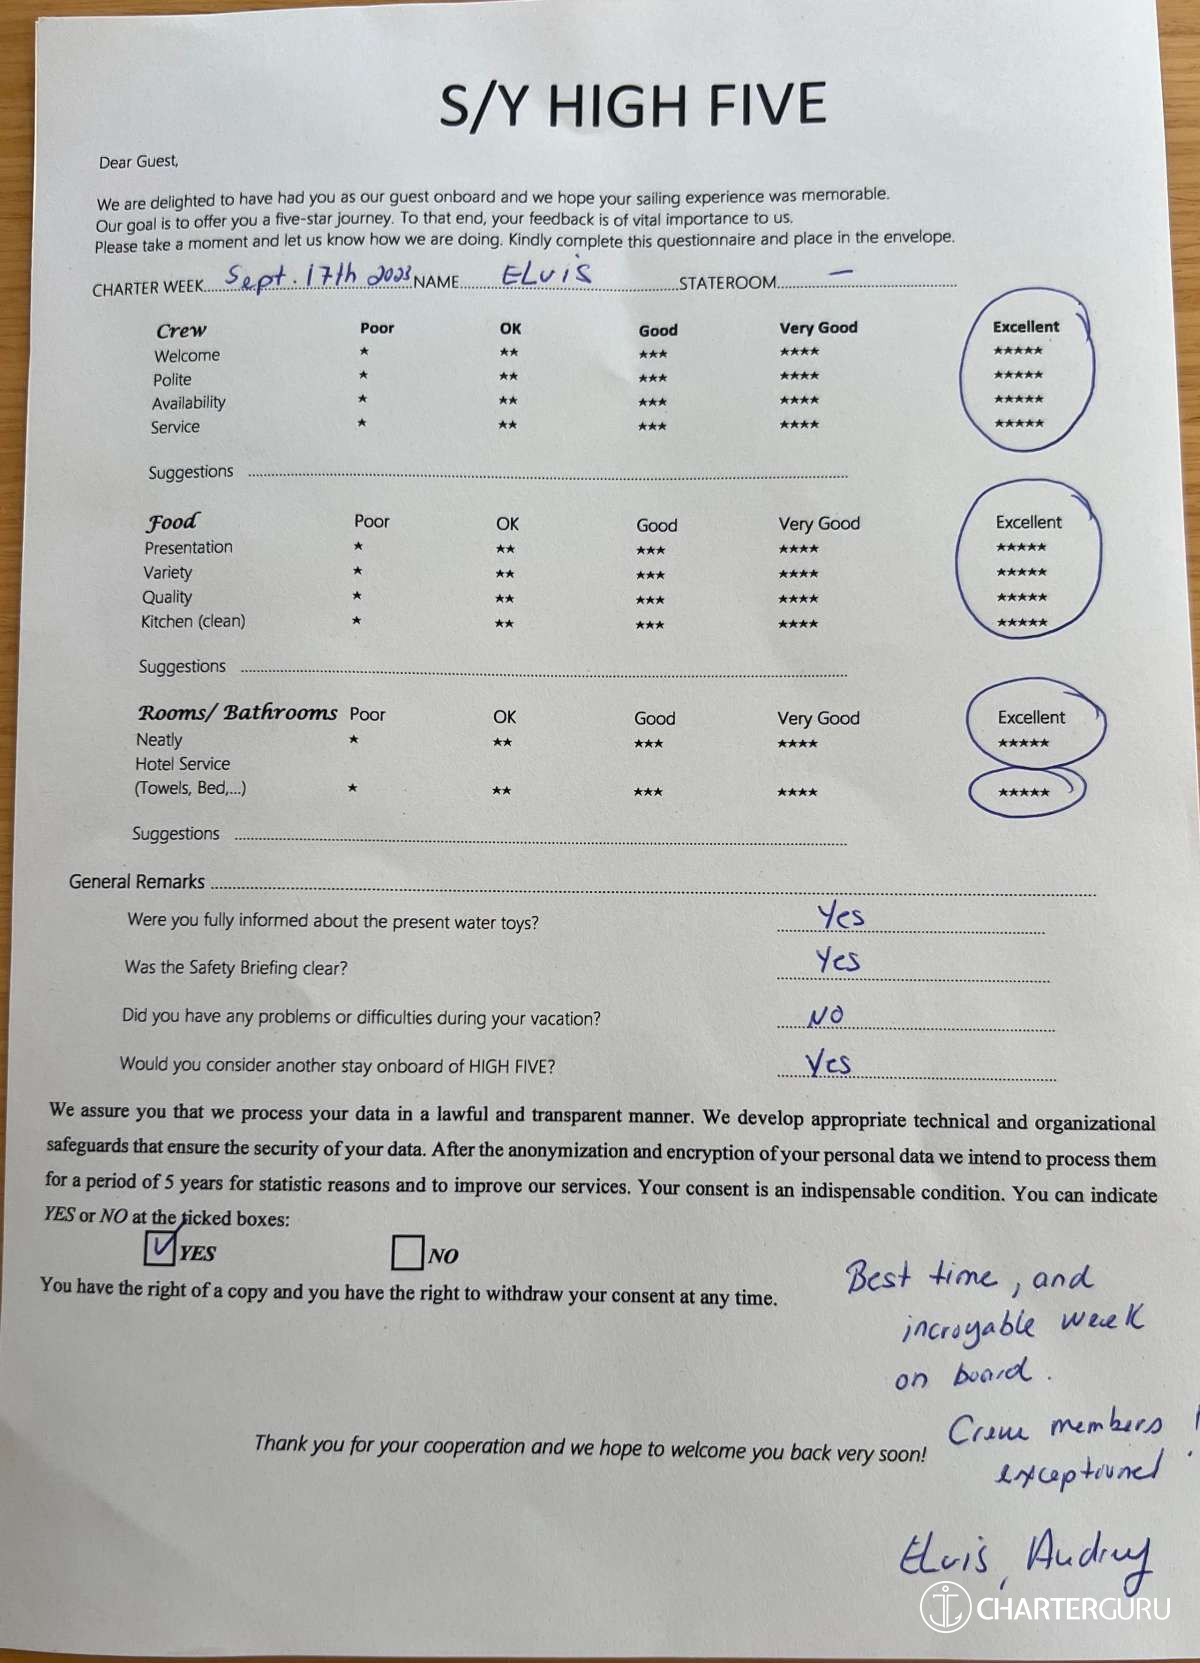 S/Y HIGH FIVE
Dear Guest,
We are delighted to have had you as our guest onboard and we hope your sailing experience was memorable.
Our goal is to offer you a five-star journey. To that end, your feedback is of vital importance to us.
Please take a moment and let us know how we are doing. Kindly complete this questionnaire and place in the envelope.
CHARTER WEEK Sept. 17th 2023 NAME ELvis STATEROOM —
Crew Poor OK Good Very Good Excellent
Welcome ★ ★★ ★★★ ★★★★ ★★★★★
Polite ★ ★★ ★★★ ★★★★ ★★★★★
Availability ★ ★★ ★★★ ★★★★ ★★★★★
Service ★ ★★ ★★★ ★★★★ ★★★★★
Suggestions
Food Poor OK Good Very Good Excellent
Presentation ★ ★★ ★★★ ★★★★ ★★★★★
Variety ★ ★★ ★★★ ★★★★ ★★★★★
Quality ★ ★★ ★★★ ★★★★ ★★★★★
Kitchen (clean) ★ ★★ ★★★ ★★★★ ★★★★★
Suggestions
Rooms/ Bathrooms Poor OK Good Very Good Excellent
Neatly ★ ★★ ★★★ ★★★★ ★★★★★
Hotel Service
(Towels, Bed,...) ★ ★★ ★★★ ★★★★ ★★★★★
Suggestions
General Remarks
Were you fully informed about the present water toys? Yes
Was the Safety Briefing clear? Yes
Did you have any problems or difficulties during your vacation? NO
Would you consider another stay onboard of HIGH FIVE? Yes
We assure you that we process your data in a lawful and transparent manner. We develop appropriate technical and organizational
safeguards that ensure the security of your data. After the anonymization and encryption of your personal data we intend to process them
for a period of 5 years for statistic reasons and to improve our services. Your consent is an indispensable condition. You can indicate
YES or NO at the ticked boxes:
YES NO
You have the right of a copy and you have the right to withdraw your consent at any time.
Best time, and
incroyable week
on board.
Thank you for your cooperation and we hope to welcome you back very soon!
Crew members !
exceptionnel
ELvis, Audrey
CHARTERGURU